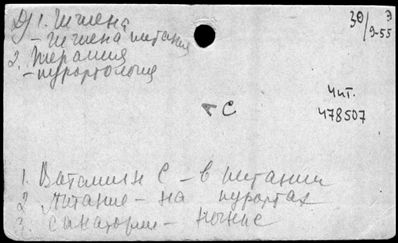 1. Гигиена
- Гигиена питания
2. Терапия
- курортология
30/9-55
Э
С
Чит.
478507
1. Витамин С - в питании
2. Питание - на курортах
3. Санатории - ночные